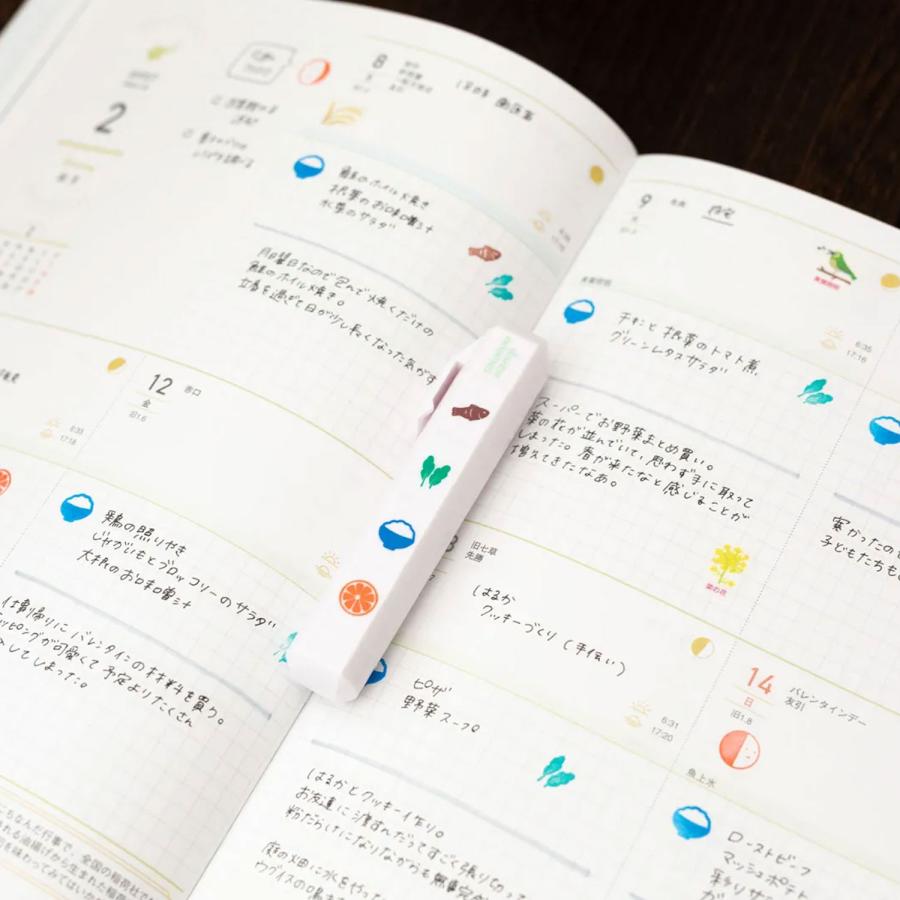 2
8
1800 歯医者
鮭のホイル焼き
根菜のお味噌汁
水菜のサラダ
月曜日なので包んで焼くだけの
鮭のホイル焼き。
立春を過ぎて日が少し長くなった気がす
6:33
17:18
12
金
旧1.6
赤口
鶏の照りやき
じゃがいもとブロッコリーのサラダ
大根のお味噌汁
仕事帰りに バレンタインの材料を買う。
ッピングが可愛くて 予定よりたくさん
してしまった。
ちなんだ行事で、全国の稲荷社で
される油揚げから生まれた稲荷
司を味わってみてはいか
9
火
先負
在宅
黄鶯睍睆
6:35
17:16
チキンと 根菜のトマト煮
グリーンレタスサラダ
スーパーでお野菜まとめ買い。
菜の花が並んでいて、思わず手に取って
しまった。春が来たなと 感じることが
増えてきたなあ。
菜の花
旧七草
先勝
はるか
クッキーづくり (手伝い)
6:31
17:20
ピザ
野菜スープ
はるかとクッキー作り。
お友達に渡すんだってすごく張り切って
粉だらけになりながらも無事完
庭の畑に水をやった
ウグイスの鳴き
寒かったのも
子どもたちも
14
日
旧1.8
バレンタインデー
友引
魚上氷
ローストビーフ
マッシュポテト
彩りサ
が